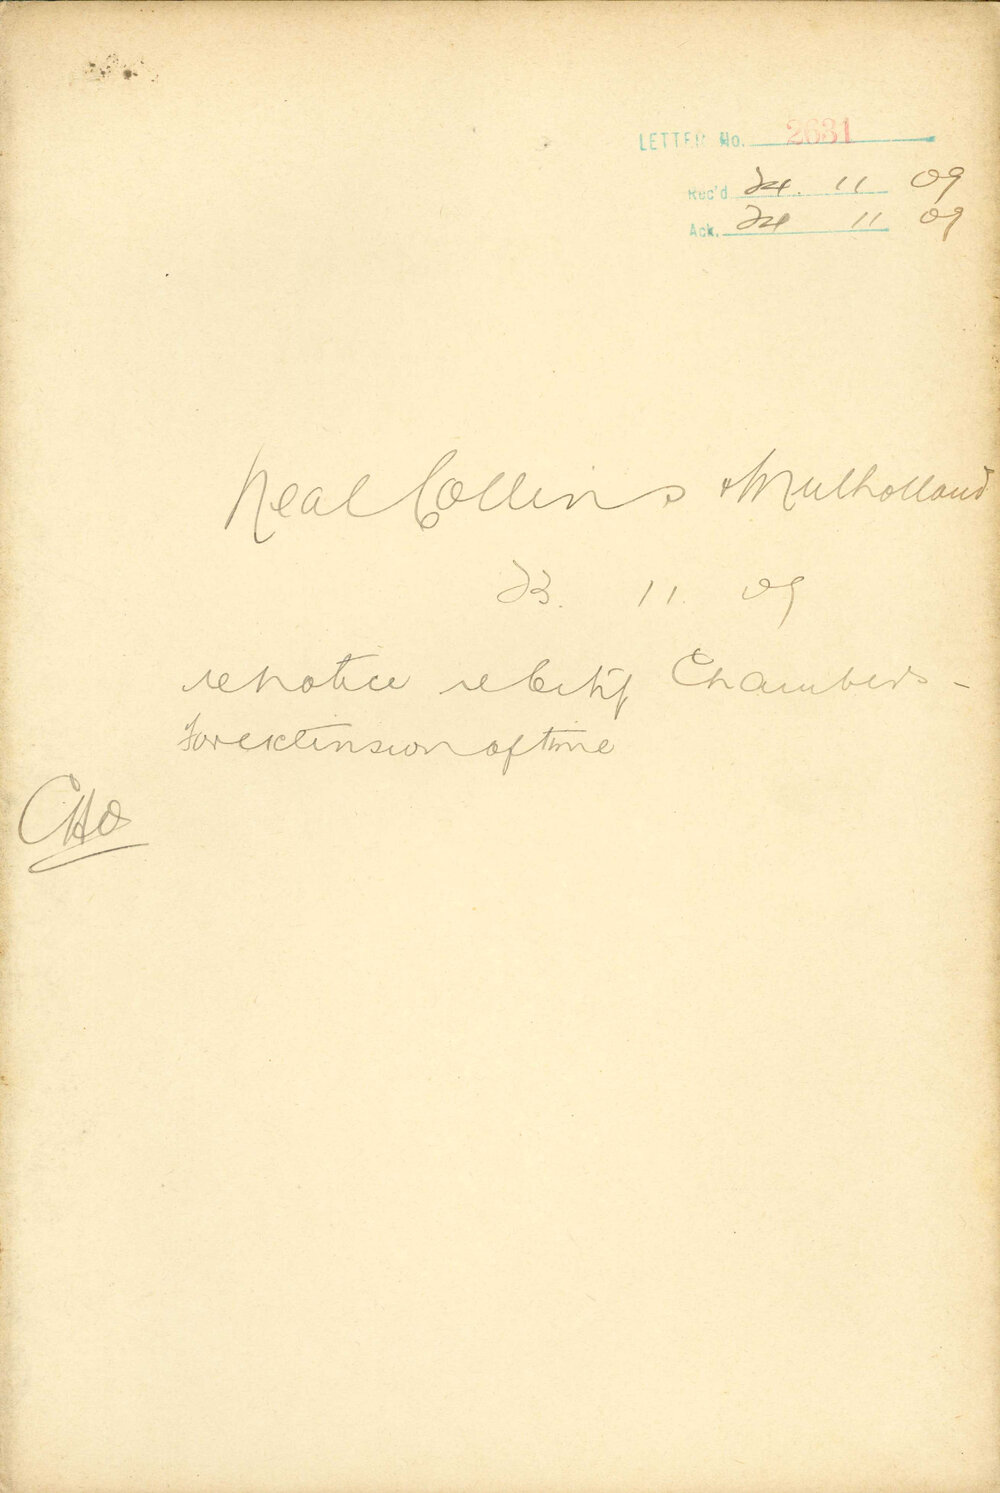 LETTER No. 2631
Rec'd 24. 11 09
Ack. 24 11 09
Neal Collins & Mulholland
23. 11. 09
re notice re City Chambers -
For extension of time
CHO